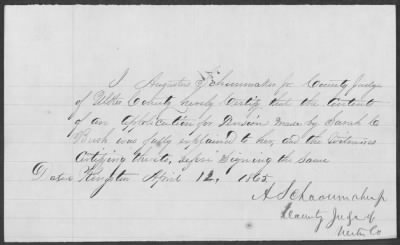 I Augustus Schoonmaker Jr. County Judge
of Ulster County hereby Certify that the Contents
of an Application for Pension made by Sarah C
Bush was fully explained to her, and the Witnesses
certifying thereto, before Signing the Same
Dated Kingston April 12, 1865
A Schoonmaker Jr
County Judge of
Ulster Co